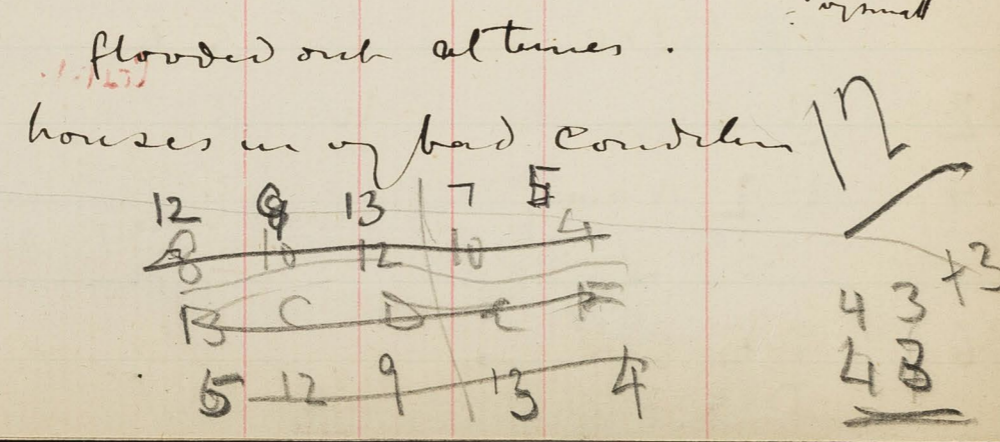 flooded out at times .
houses in vy bad condition
12 9 13 7 5
8 10 12 10 4
B C D E F
5 12 9 13 4
12
+3
43
43